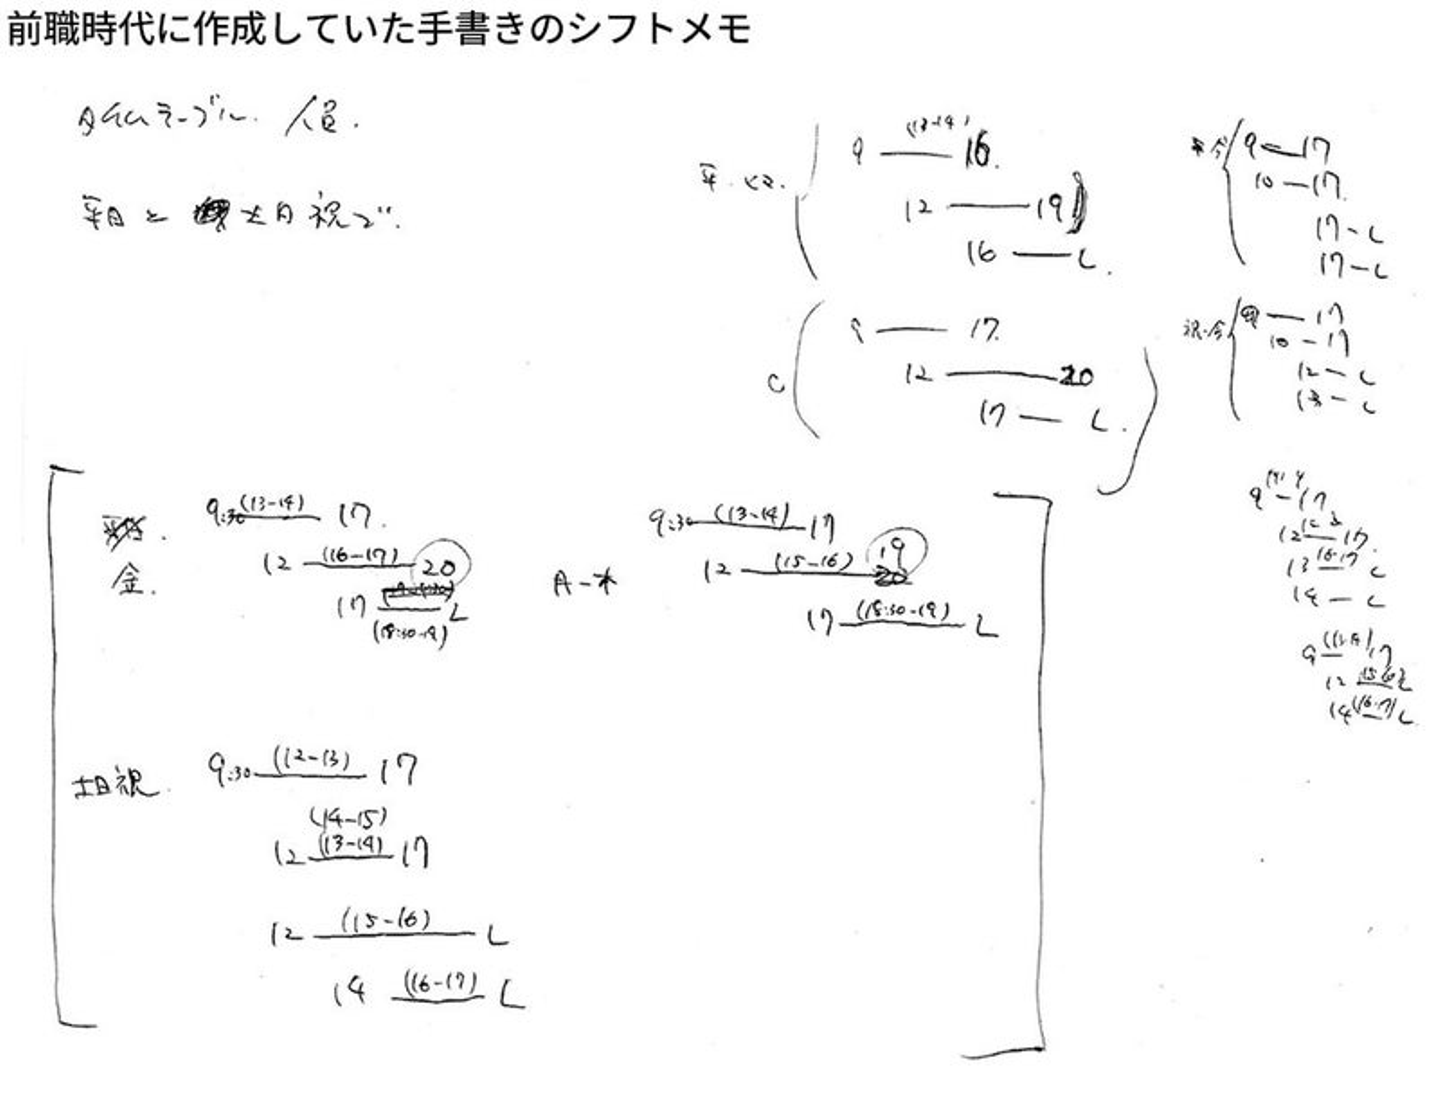 前職時代に作成していた手書きのシフトメモ
タイムテーブル. 人員.
平日と 土日祝で.
(13-14)
9 — 16.
12 — 19
16 — L.
C
9 — 17.
12 — 20
17 — L.
9 — 17
10 — 17.
17 - L
17 - L
祝.今
— 17
10 - 17
12 - L
13 - L
9 - 17
12 — 17.
13 (16-17) L
14 — L
9 (13-14) 17
12 (15-16) L
14 (16-17) L
金.
9:30 (13-14) 17.
12 (16-17) 20
17 — L
(18:30-19)
月-木
9:30 (13-14) 17
19
12 (15-16) 20
17 (18:30-19) L
土日祝.
9:30 (12-13) 17
(14-15)
12 (13-14) 17
12 (15-16) L
14 (16-17) L